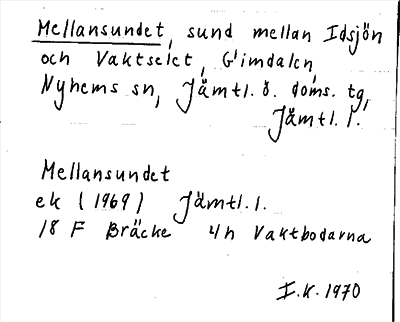 Mellansundet, sund mellan Idsjön
och Vaktselet, Gimdalen,
Nyhems sn, Jämtl. ö. doms. tg,
Jämtl. l.
Mellansundet
ek (1969) Jämtl. l.
18 F Bräcke 4h Vaktbodarna
I.K. 1970